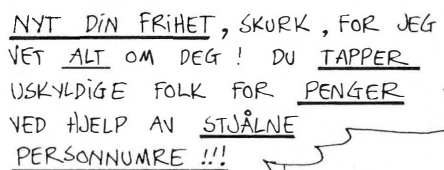 NYT DIN FRIHET, SKURK, FOR JEG
VET ALT OM DEG! DU TAPPER
USKYLDIGE FOLK FOR PENGER
VED HJELP AV STJÅLNE
PERSONNUMRE!!!